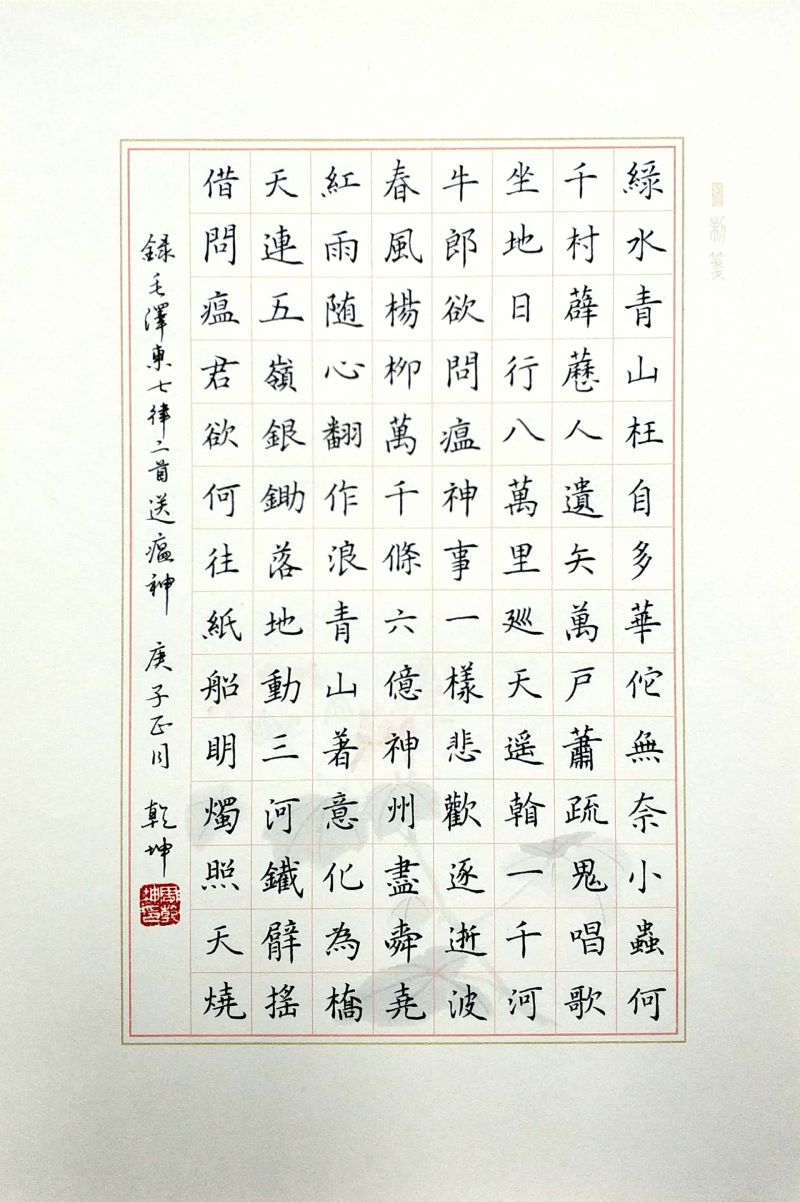 綠水青山枉自多華佗無奈小蟲何
千村薜藶人遺矢萬戶蕭疏鬼唱歌
坐地日行八萬里廵天遥看一千河
牛郎欲問瘟神事一樣悲歡逐逝波
春風楊柳萬千條六億神州盡舜堯
紅雨随心翻作浪青山著意化為橋
天連五嶺銀鋤落地動三河鐵臂搖
借問瘟君欲何往紙船明燭照天燒
録毛澤東七律二首送瘟神 庚子正月 乾坤
周乾坤印